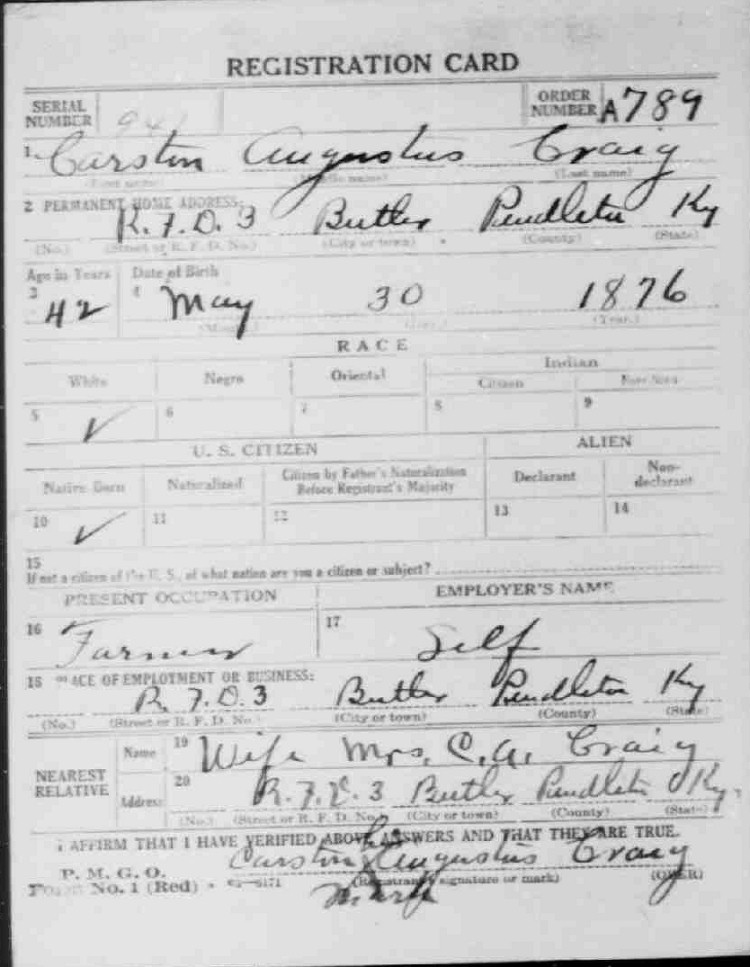 REGISTRATION CARD
SERIAL NUMBER 941 ORDER NUMBER A789
1 Carstin Augustus Craig
(First name) (Middle name) (Last name)
2 PERMANENT HOME ADDRESS:
R.F.D. 3 Butler Pendleton Ky
(No.) (Street or R. F. D. No.) (City or town) (County) (State)
Age in Years Date of Birth
3 42 4 May 30 1876
(Month.) (Day.) (Year.)
RACE
White Negro Oriental Indian
Citizen Non-citizen
5 ✓ 6 7 8 9
U. S. CITIZEN ALIEN
Native Born Naturalized Citizen by Father's Naturalization Before Registrant's Majority Declarant Non-declarant
10 ✓ 11 12 13 14
15
If not a citizen of the U. S., of what nation are you a citizen or subject?
PRESENT OCCUPATION EMPLOYER'S NAME
16 Farmer 17 Self
18 PLACE OF EMPLOYMENT OR BUSINESS:
R. F. D. 3 Butler Pendleton Ky
(No.) (Street or R. F. D. No.) (City or town) (County) (State)
NEAREST RELATIVE
Name 19 Wife Mrs. C. A. Craig
Address 20 R. F. D. 3 Butler Pendleton Ky.
(No.) (Street or R. F. D. No.) (City or town) (County) (State)
I AFFIRM THAT I HAVE VERIFIED ABOVE ANSWERS AND THAT THEY ARE TRUE.
his
Carstin X Augustus Craig
P. M. G. O.
Form No. 1 (Red) (Registrant's signature or mark) (OVER)
mark